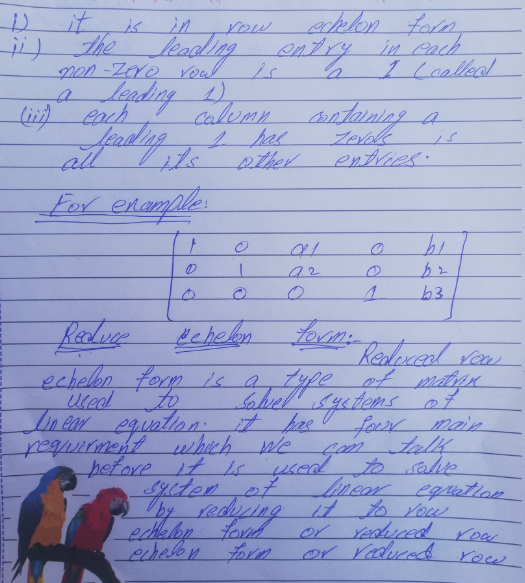 i) it is in row echelon form
ii) the leading entry in each
non-zero row is a 1 (called
a leading 1)
(iii) each column containing a
leading 1 has zeros is
all its other entries.
For example:
1 0 a1 0 b1
0 1 a2 0 b2
0 0 0 1 b3
Reduce echelon form:-
Reduced row
echelon form is a type of matrix
used to solve systems of
linear equation. it has four main
requirment which we can talk
before it is used to solve
system of linear equation
by reducing it to row
echelon form or reduced row
echelon form or reduced row